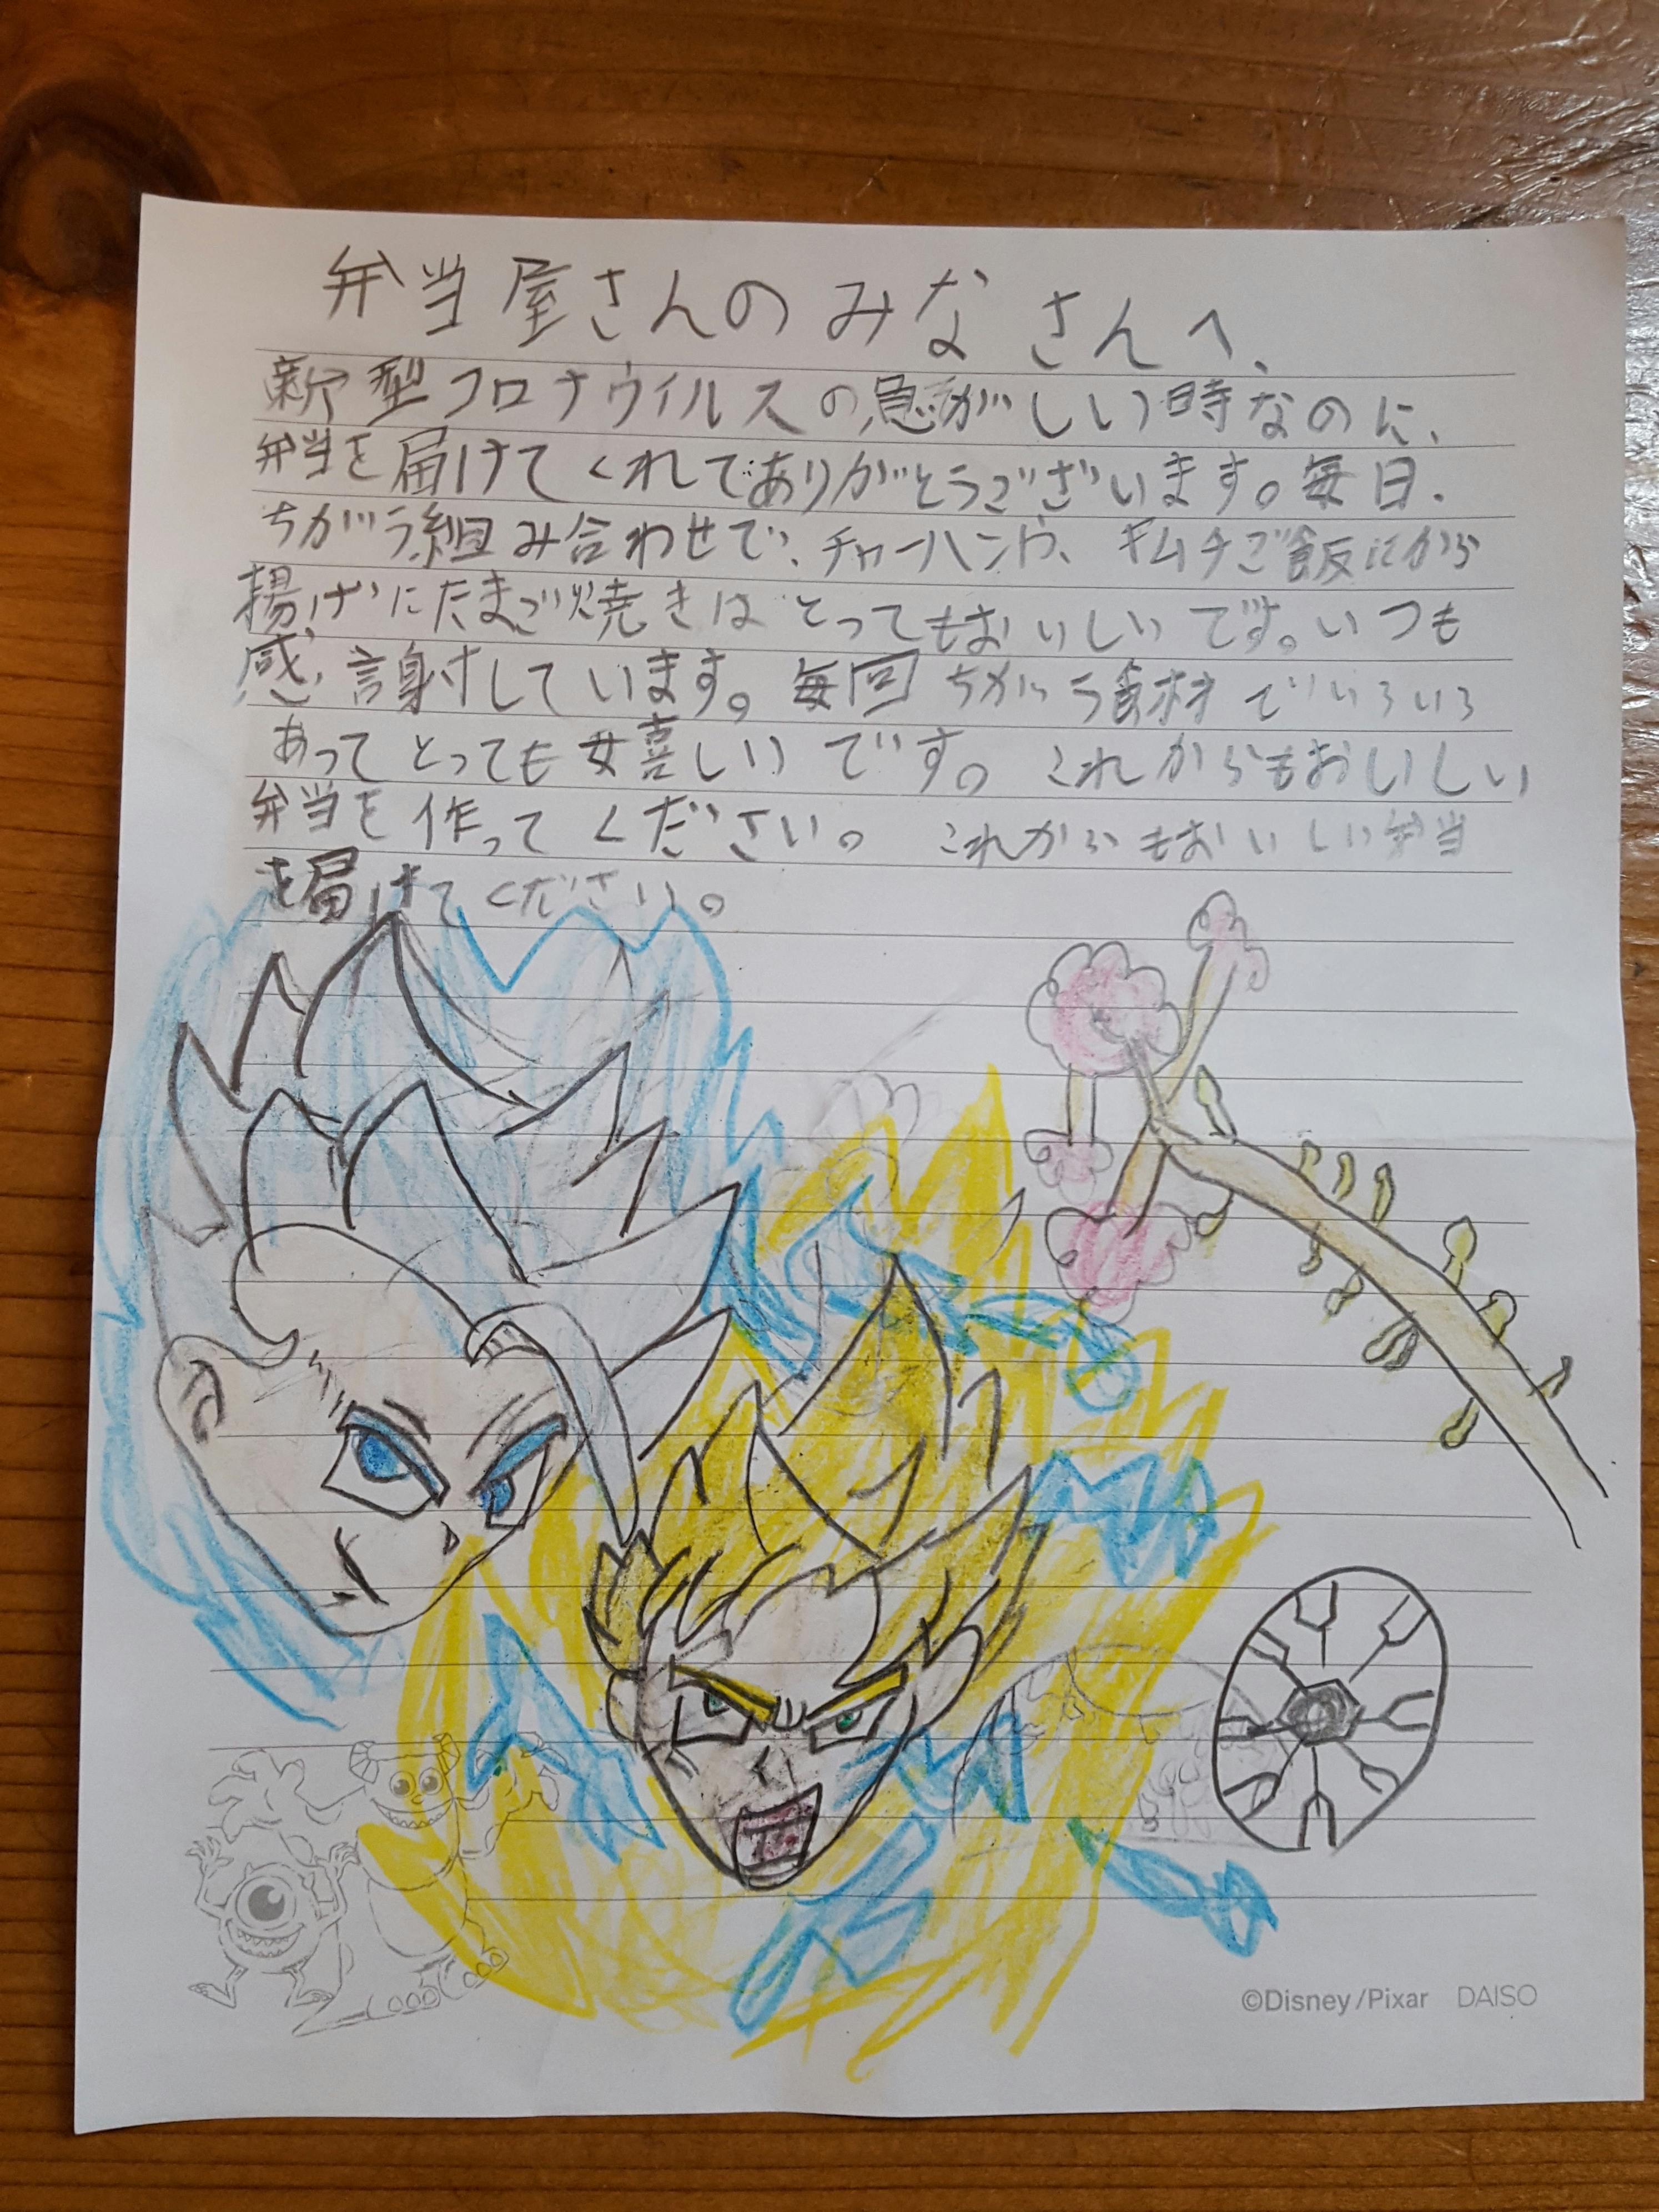 弁当屋さんのみなさんへ、
新型コロナウイルスの急がしい時なのに、
弁当を届けてくれてありがとうございます。毎日、
ちがう組み合わせで、チャーハンや、キムチご飯にから
揚げにたまご焼きはとってもおいしいです。いつも
感謝しています。毎回ちがう食材でいろいろ
あってとっても嬉しいです。これからもおいしい
弁当を作ってください。これからもおいしい弁当
を届けてください。
©Disney/Pixar DAISO